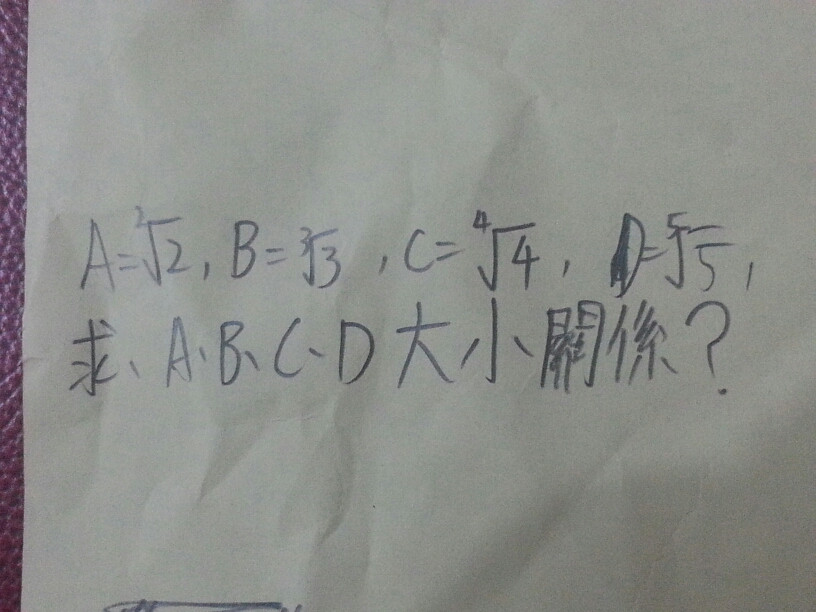 A=²√2, B=³√3, C=⁴√4, D=⁵√5,
求、A、B、C、D大小關係?